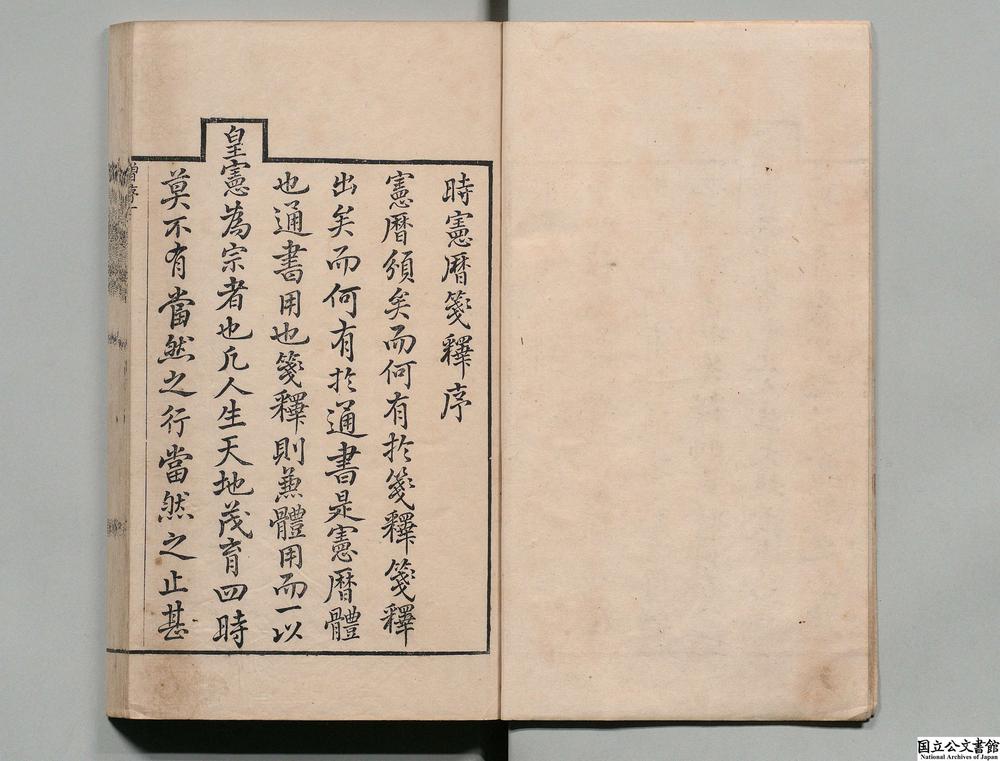 時憲暦箋釋序
憲暦頒矣而何有扵箋釋箋釋
出矣而何有扵通書是憲暦體
也通書用也箋釋則兼體用而一以
皇憲為宗者也凡人生天地茂育四時
莫不有當然之行當然之止甚
国立公文書館
National Archives of Japan